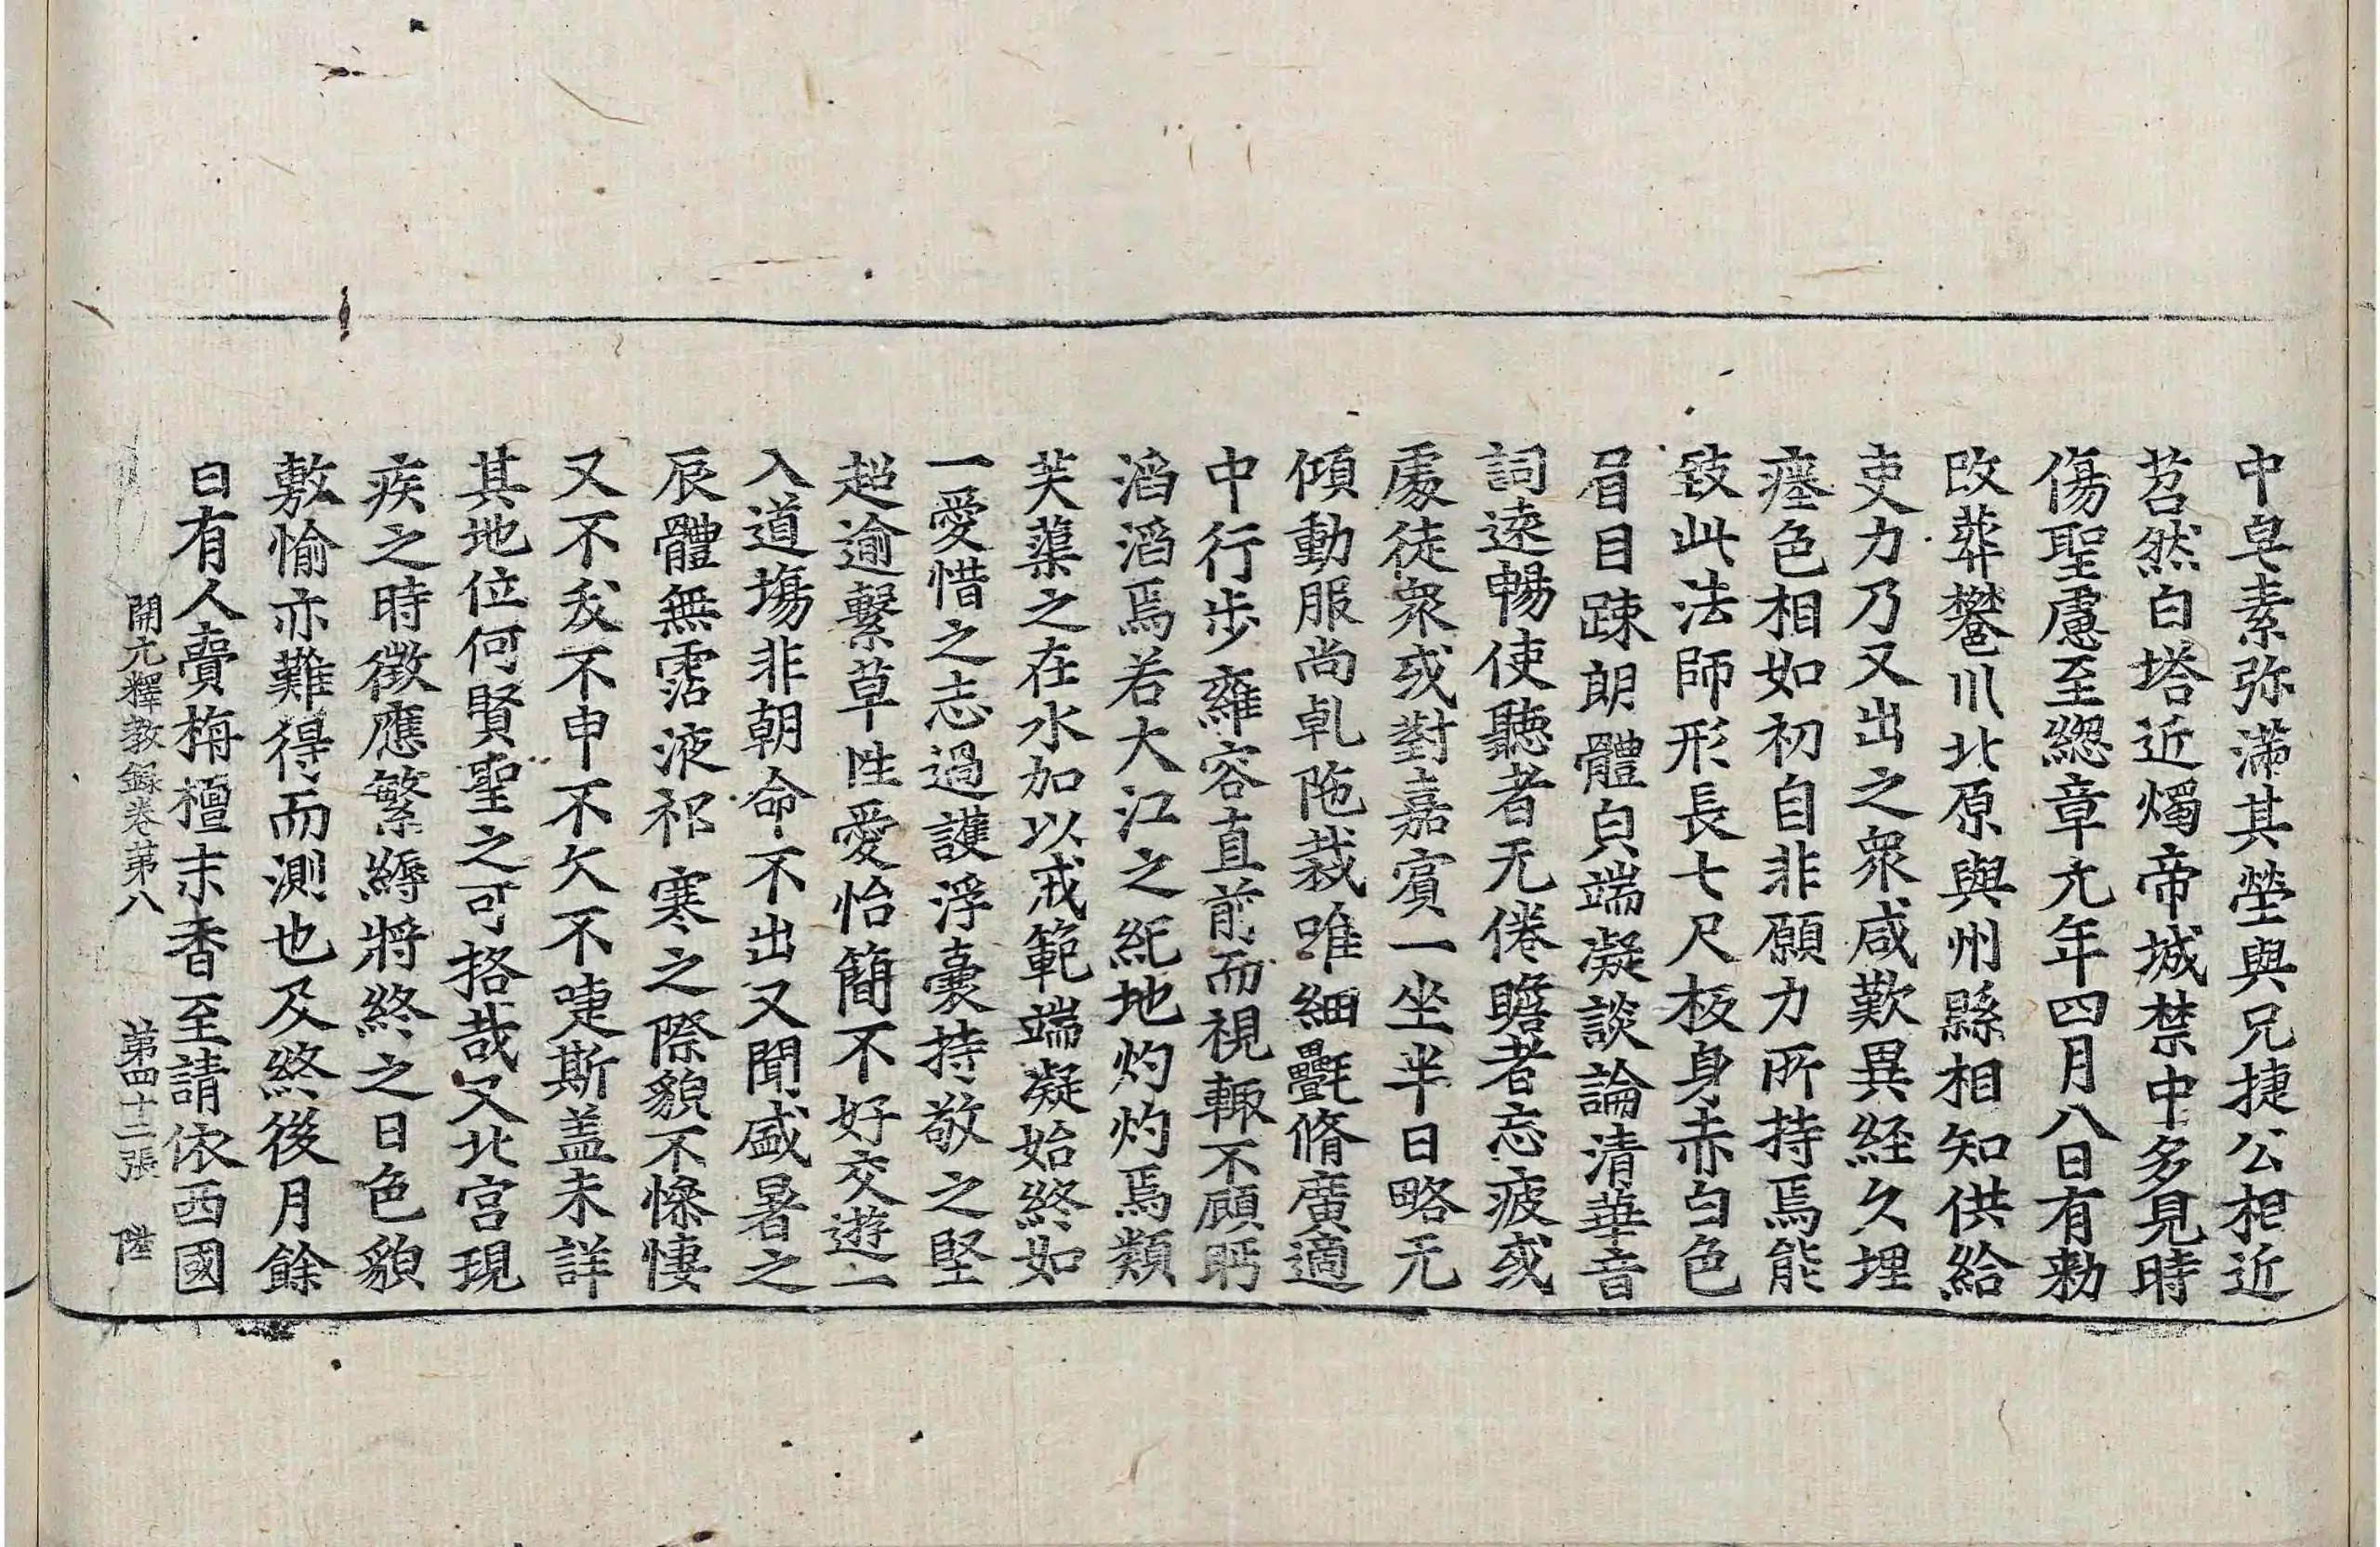 中皁素弥滿其塋與兄捷公相近
苕然白塔近燭帝城禁中多見時
傷聖慮至緫章元年四月八日有勑
改葬樊川北原與州縣相知供給
吏力乃又出之衆咸歎異経久埋
瘞色相如初自非願力所持焉能
致此法師形長七尺板身赤白色
眉目踈朗體皃端凝談論清華音
詞遠暢使聽者无倦瞻者忘疲或
處徒衆或對嘉賓一坐半日略无
傾動服尚乹陁裁唯細㲲脩廣適
中行步雍容直前而視輙不顧眄
滔滔焉若大江之紀地灼灼焉類
芙蕖之在水加以戒範端凝始終如
一愛惜之志過護浮囊持敬之堅
超逾繫草性愛怡簡不好交遊一
入道塲非朝命不出又聞盛暑之
辰體無霑液祁寒之際貌不慘悽
又不㚆不申不欠不嚏斯盖未詳
其地位何賢聖之可挌哉又北宫現
疾之時徴應繁縟將終之日色貌
敷愉亦難得而測也及終後月餘
日有人賷栴檀末香至請依西國
開元釋教錄卷苐八　苐四十二張　陞